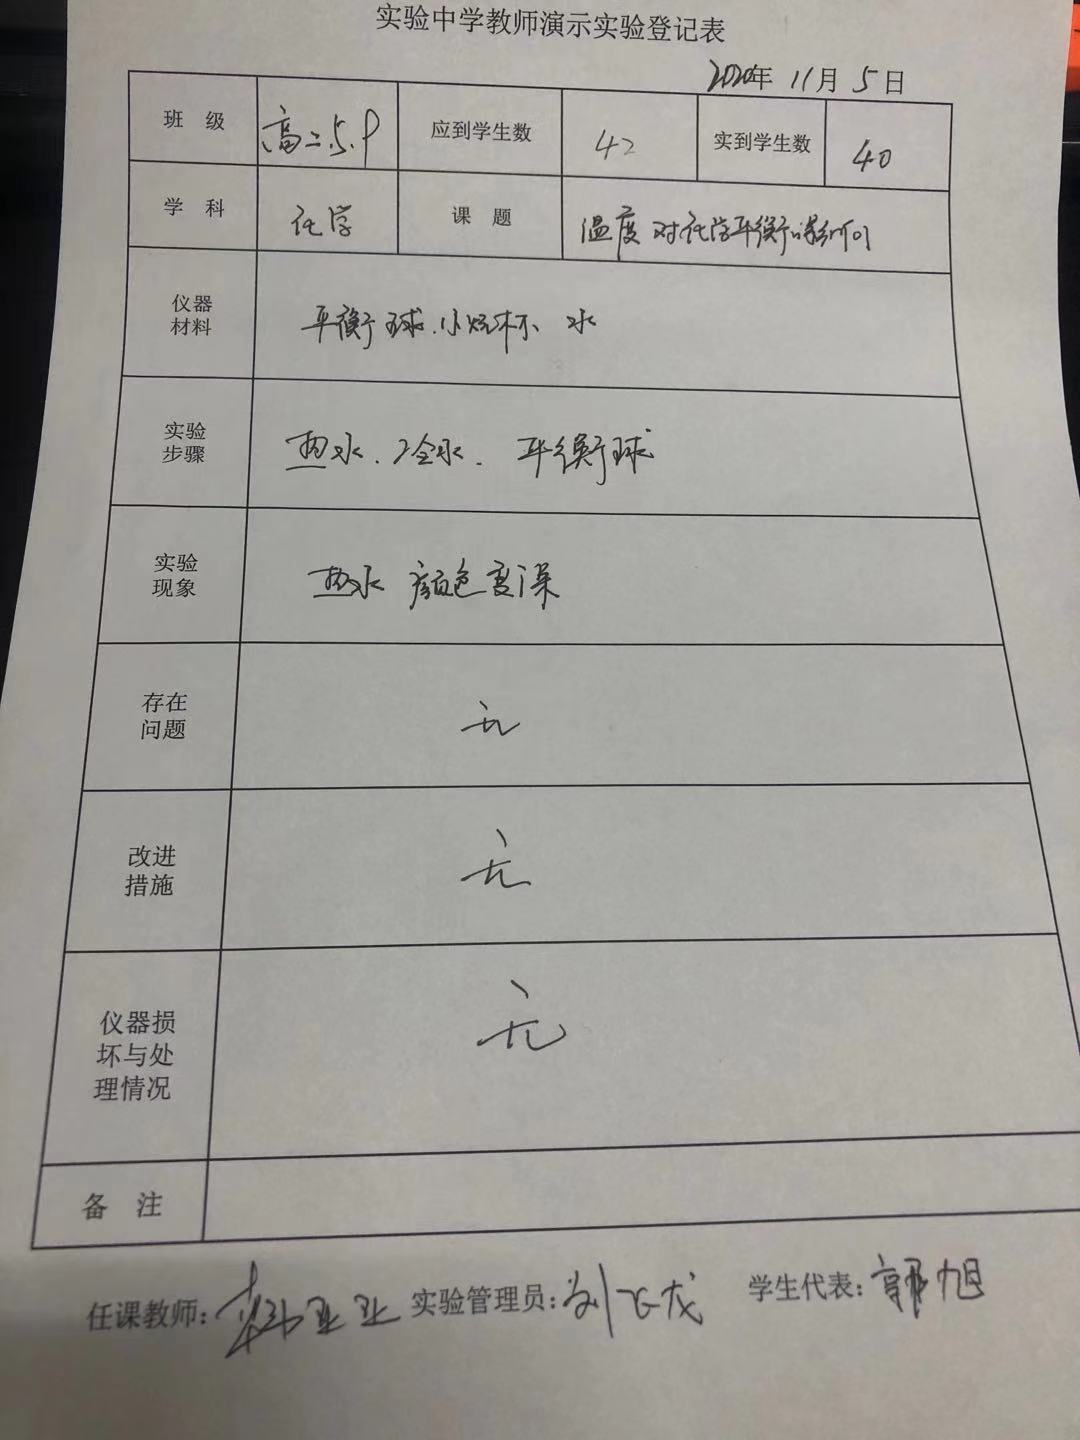 实验中学教师演示实验登记表
2020年 11月 5日
班 级 高二.5.9 应到学生数 42 实到学生数 40
学 科 化学 课 题 温度对化学平衡的影响
仪器
材料
平衡球.小烧杯 水
实验
步骤
热水.冷水. 平衡球
实验
现象
热水 颜色变深
存在
问题
无
改进
措施
无
仪器损
坏与处
理情况
无
备 注
任课教师: 实验管理员:刘飞龙 学生代表:郭旭